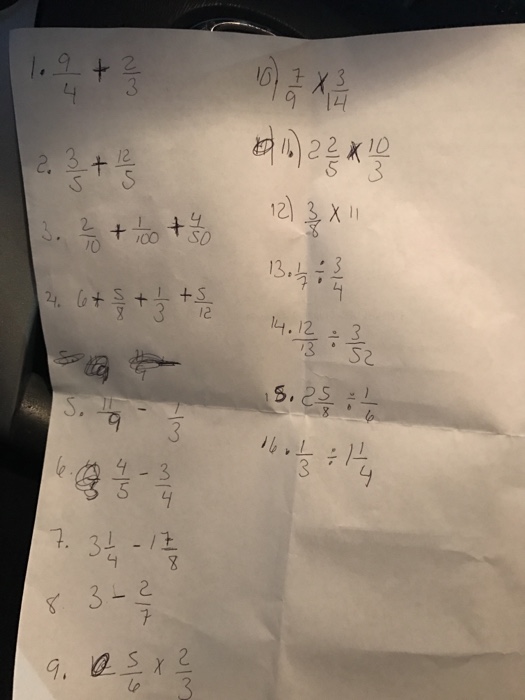 1. 9/4 + 2/3
2. 3/5 + 12/5
3. 2/10 + 1/100 + 4/50
4. 6 + 5/8 + 1/3 + 5/12
5. 11/9 - 1/3
6. 4/5 - 3/4
7. 3 1/4 - 1 7/8
8 3 - 2/7
9. 5/6 x 2/3
10) 7/9 x 3/14
11.) 2 2/5 x 10/3
12) 3/8 x 11
13. 1/7 ÷ 3/4
14. 12/13 ÷ 3/52
15. 2 5/8 ÷ 1/6
16. 1/3 ÷ 1 1/4